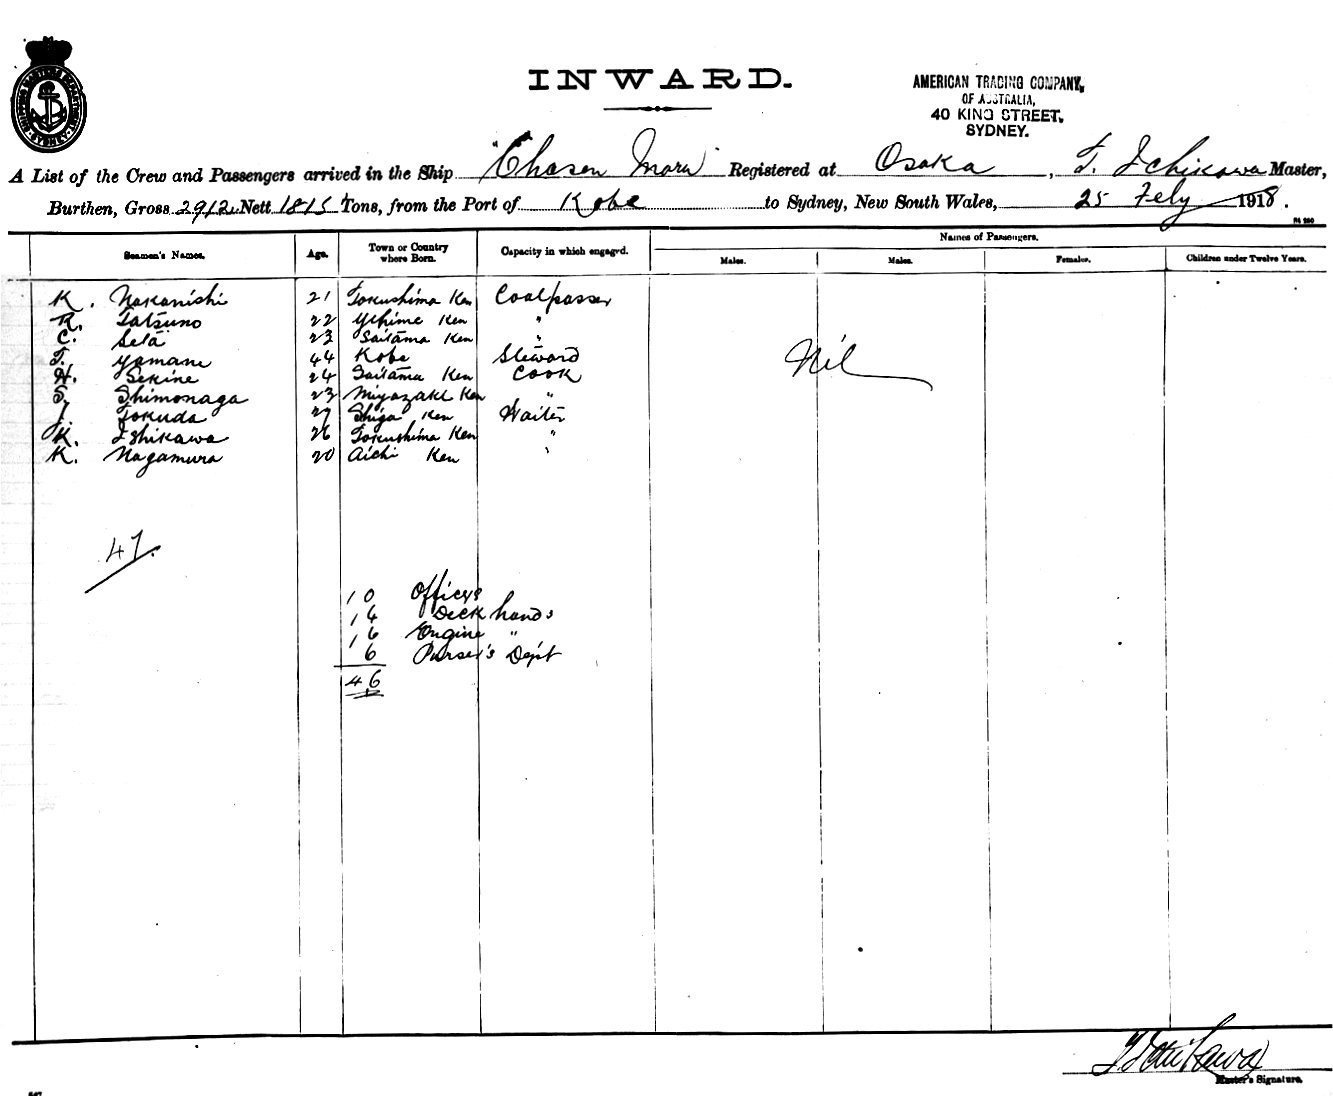 INWARD.
AMERICAN TRADING COMPANY,
OF AUSTRALIA,
40 KING STREET,
SYDNEY.
SHIPPING MASTER'S DEPARTMENT SYDNEY
A List of the Crew and Passengers arrived in the Ship "Chosen Maru" Registered at Osaka, T. Ichikawa Master,
Burthen, Gross 2912 Nett 1815 Tons, from the Port of Kobe to Sydney, New South Wales, 25 Feby 1918.
Seamen's Names. Age. Town or Country where Born. Capacity in which engaged. Names of Passengers.
Males. Males. Females. Children under Twelve Years.
K. Nakanishi 21 Tokushima Ken Coalpasser
R. Tatsuno 22 Yehime Ken "
C. Seta 23 Saitama Ken "
T. Yamane 44 Kobe Steward
H. Sekine 24 Saitama Ken Cook
S. Shimonaga 23 Miyazaki Ken "
J. Tokuda 27 Shiga Ken Waiter
K. Ishikawa 26 Tokushima Ken "
K. Nagamura 20 Aichi Ken "
Nil
47.
10 Officers
14 Deck hands
16 Engine "
6 Purser's Dept
46
T Ichikawa
Master's Signature.